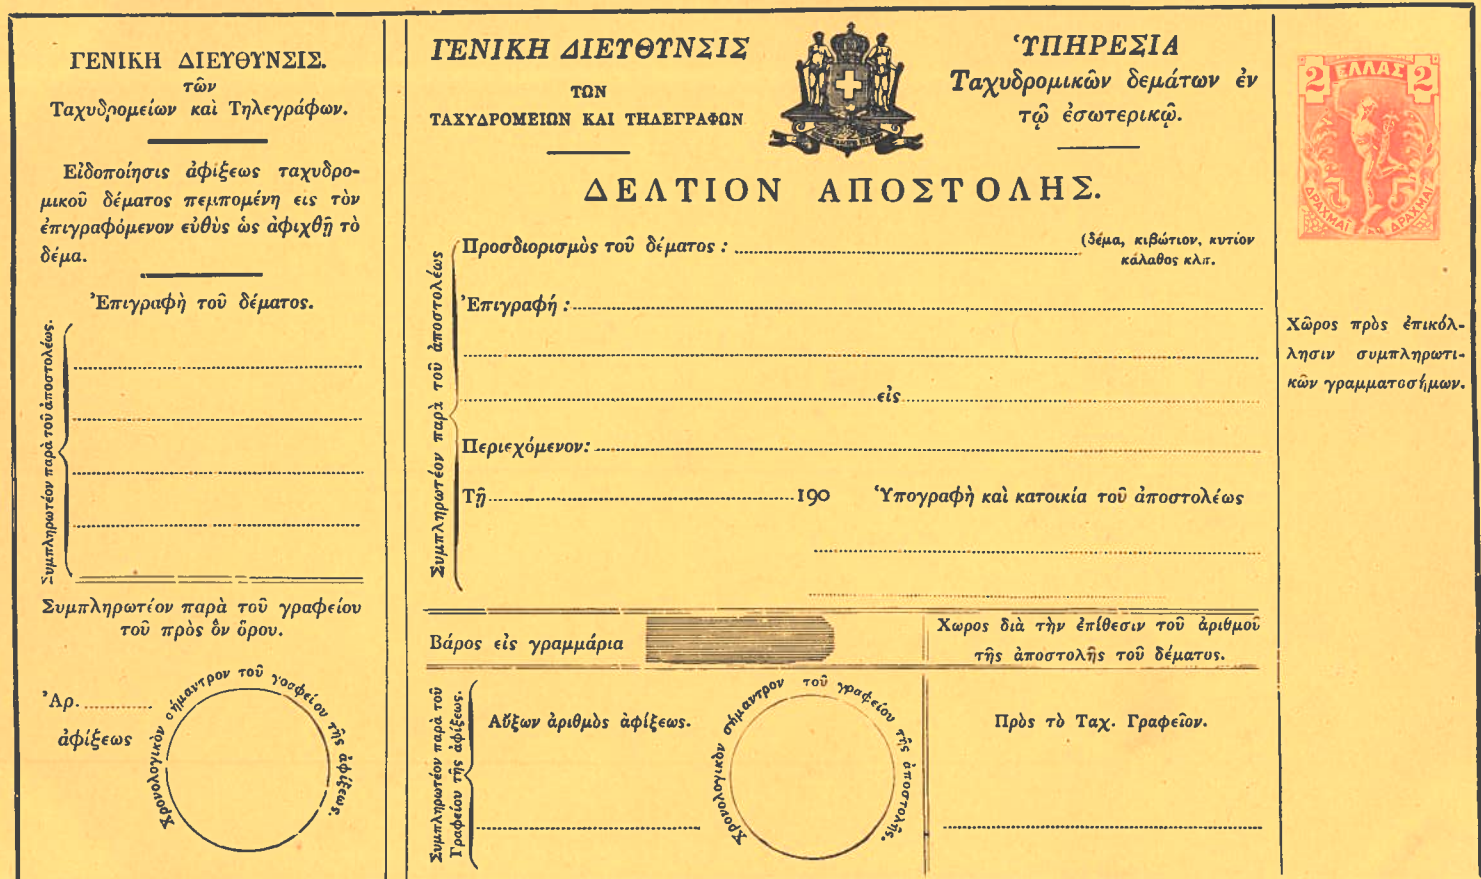 ΓΕΝΙΚΗ ΔΙΕΥΘΥΝΣΙΣ.
τῶν
Ταχυδρομείων καὶ Τηλεγράφων.
Εἰδοποίησις ἀφίξεως ταχυδρο-
μικοῦ δέματος πεμπομένη εις τὸν
ἐπιγραφόμενον εὐθὺς ὡς ἀφιχθῇ τὸ
δέμα.
Ἐπιγραφὴ τοῦ δέματος.
Συμπληρωτέον παρὰ τοῦ ἀποστολέως.
Συμπληρωτέον παρὰ τοῦ γραφείου
τοῦ πρὸς ὃν ὅρου.
Ἀρ.
ἀφίξεως
Χρονολογικὸν σήμαντρον τοῦ γοσφείου τῆς ἀφίξεως.
ΓΕΝΙΚΗ ΔΙΕΥΘΥΝΣΙΣ
ΤΩΝ
ΤΑΧΥΔΡΟΜΕΙΩΝ ΚΑΙ ΤΗΛΕΓΡΑΦΩΝ
ὙΠΗΡΕΣΙΑ
Ταχυδρομικῶν δεμάτων ἐν
τῷ ἐσωτερικῷ.
ΔΕΛΤΙΟΝ ΑΠΟΣΤΟΛΗΣ.
Συμπληρωτέον παρὰ τοῦ ἀποστολέως
Προσδιορισμὸς τοῦ δέματος :
(δέμα, κιβώτιον, κυτίον
κάλαθος κλπ.
Ἐπιγραφή :
εἰς
Περιεχόμενον:
Τῇ 190
Ὑπογραφὴ καὶ κατοικία τοῦ ἀποστολέως
Βάρος εἰς γραμμάρια
Χωρος διὰ τὴν ἐπίθεσιν τοῦ ἀριθμοῦ
τῆς ἀποστολῆς τοῦ δέματος.
Συμπληρωτέον παρὰ τοῦ
Γραφείου τῆς ἀφίξεως.
Αὔξων ἀριθμὸς ἀφίξεως.
Χρονολογικὸν σήμαντρον τοῦ γραφείου τῆς ἀποστολῆς.
Πρὸς τὸ Ταχ. Γραφεῖον.
2 ΕΛΛΑΣ 2
ΔΡΑΧΜΑΙ ΔΡΑΧΜΑΙ
Χῶρος πρὸς ἐπικόλ-
λησιν συμπληρωτι-
κῶν γραμματοσήμων.